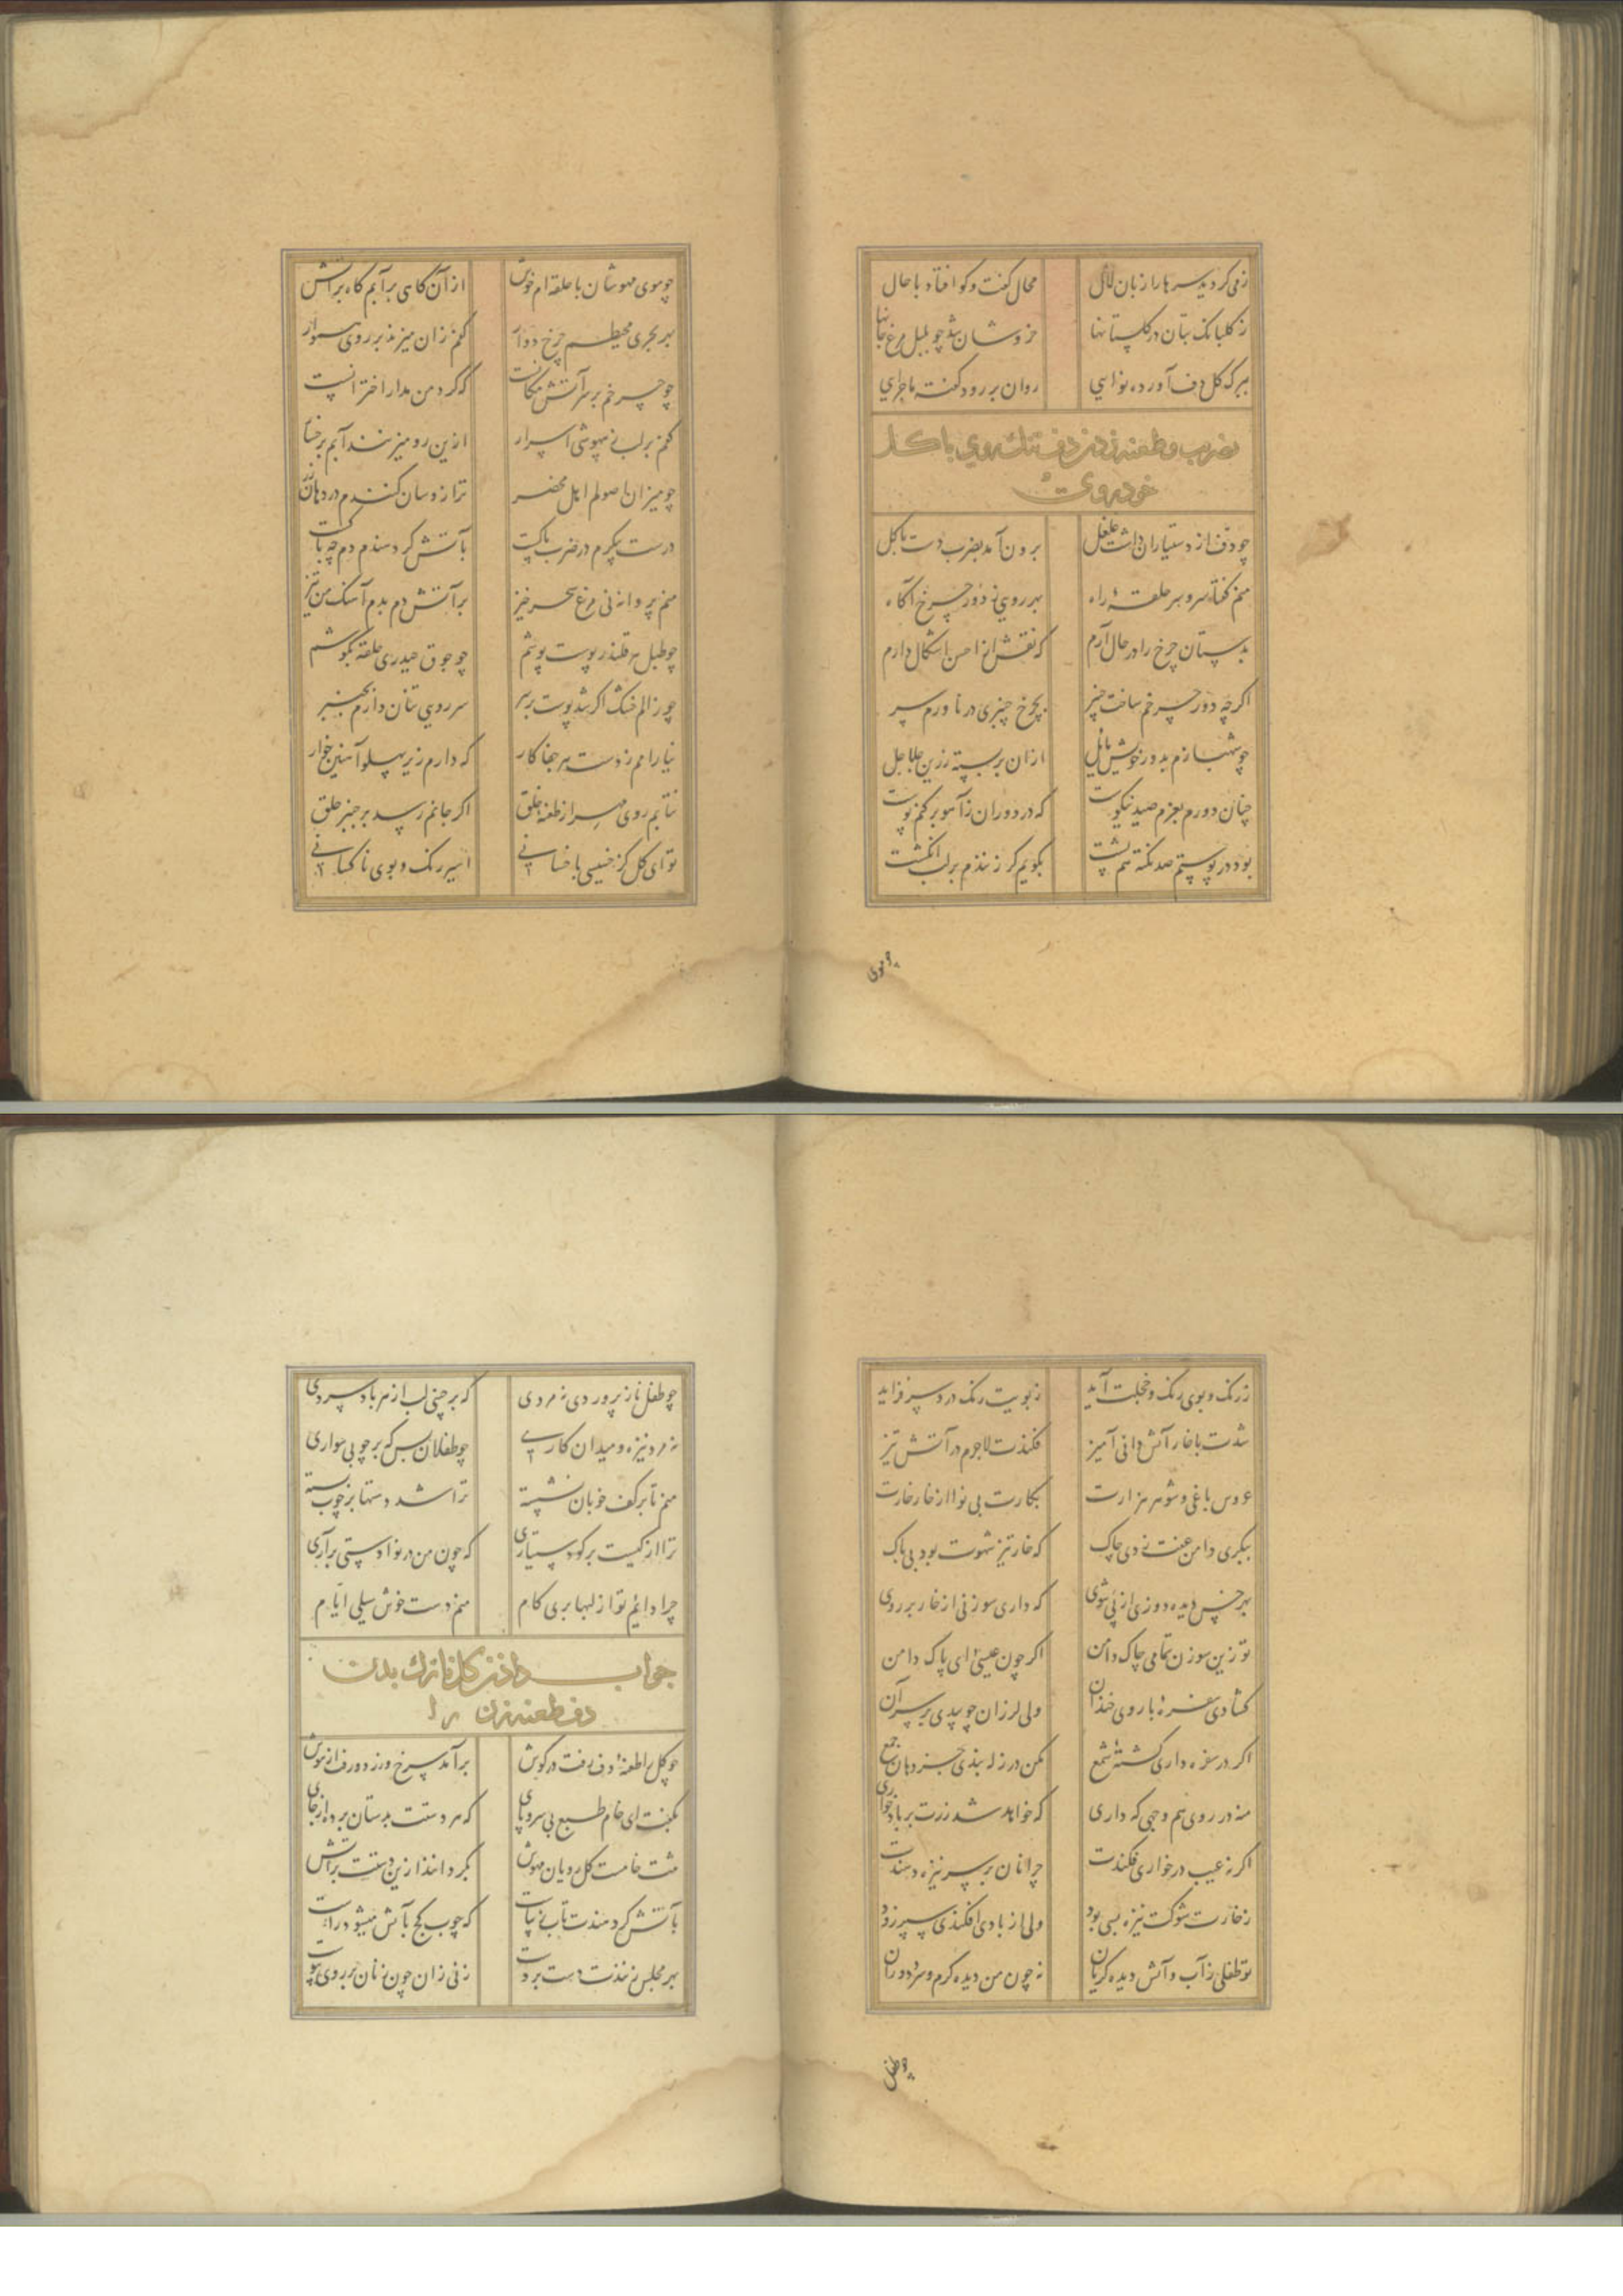 زمی کرد بدسرها را زبان لال محال گفت و کو افتاد با حال
ز گلبانک بتان در گلستانها خروشان شد چو بلبل مرغ جانها
ببرک گل دف آورده نوایی روان بر رود گفته ماجرای
بضرب وطعنه زدن دف تنک روی با کل
خودروی
چو دف از دستیاران داشت غلغل برون آمد بضرب دست با کل
منم گفتا سر و سر حلقهٔ راه بهر روی ز دور چرخ آگاه
بدستان چرخ را در حال آرم که نقش از احسن اشکال دارم
اگر چه دور چرخم ساخت چنبر بچرخ چنبری در ناورم سر
چو شهبازم بدور خویش مایل از ان بر بسته زرین جلاجل
چنان دورم بعزم صید نیکوست که در دوران ز آهو بر کنم پوست
بود در پوستم صد نکته هم پشت بگویم گر زنندم بر لب انگشت
چو موی
چو موی مهوشان با حلقه ام خوش از آن گاهی بر آبم گاه بر آتش
بهر بحری محیطم چرخ دوار کفم زان میزند بر روی هموار
چو چرخم بر سر آتش مکانست که گرد من مدار اخترانست
کفم بر لب ز بیهوشی اسرار ازین رو میزنند آبم بر خسار
چو میزان باصولم اهل محضر ترازو سان کنندم در دهان زر
درست پیکرم در ضرب پاکست بآتش گر دهندم دم چه باکست
منم پروانه نی مرغ سحر خیز بر آتش دم بدم آهنک من تیز
چو طبل هر قلندر پوست پوشم چو جوق حیدری حلقه بگوشم
چو زالم خشک اگر شد پوست بر بر سر روی بتان دارم بچنبر
نیازارم ز دست هر جفا کار که دارم زیر پهلو آهنین خار
نتابم روی مهر از طعنه خلق اگر جانم رسد بر چنبر حلق
تو ای کل کز خسیسی با خسانی اسیر رنک و بوی ناکسانی
ز رنک و بوی رنک و خجلت آید ز بویت رنک درد سر فزاید
شدت با خار آتش دانی آمیز فکندت لاجرم در آتش تیز
عروس باغی و شوهر هزارت بکارت بی نوا از خار خارت
ببکری دامن عفت زدی چاک که خار تیز شهوت بود بی باک
بهر خس دیده دوزی از پی شوی که داری سوزنی از خار بر روی
تو زین سوزن تمامی چاک دامن اگر چون عیسئی ای پاک دامن
گشادی سفره با روی خندان ولی لرزان چو بیدی بر سر آن
اگر در سفره داری گشتهٔ شمع مکن در زله بندی جز دهان جمع
منه در روی هم وجهی که داری که خواهد شد زرت بر باد خواری
اگر نه عیب در خواری فکندت چرا نان بر سر نیزه دهندت
ز خارت شوکت نیزه بسی بود ولی از بادی افکندی سپر زود
تو طفلی ز آب و آتش دیده گریان نه چون من دیده گرم و سرد دوران
چو طفل
چو طفل ناز پروردی نه مردی که بر چینی لب از هر باد سردی
نه مرد نیزه و میدان کاری چو طفلان بس که بر چوبی سواری
منم تا بر کف خوبان نشسته ترا شد دستها بر چوب بسته
ترا از کیست برگو دستیاری که چون من در نوا دستی بر آری
چرا دایم تو از لبها بری کام منم دست خوش سیلی ایام
جواب دادن کل نازک بدن
دف طعنه زن را
چو کل را طعنهٔ دف رفت در گوش بر آمد سرخ و زد دورف از خون
بگفت ای خام طبع بی سروپای که هر دستت بدستان برد از جای
مشت خامت کل رویان مهوش بگردانند ازین دستت بر آتش
بآتش گر دهندت تاب زیباست که چوب کج بآتش میشود راست
بهر مجلس زنندت دست بر دست زنی زان چون زنان بر روی پیوست